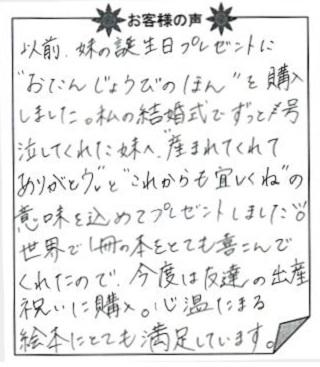 お客様の声
以前、妹の誕生日プレゼントに
"おたんじょうびのほん"を購入
しました。私の結婚式でずっと号
泣してくれた妹へ、"産まれてくれて
ありがとう"と"これからも宜しくね"の
意味を込めてプレゼントしました
世界で1冊の本をとても喜こんで
くれたので、今度は友達の出産
祝いに購入。心温たまる
絵本にとても満足しています。